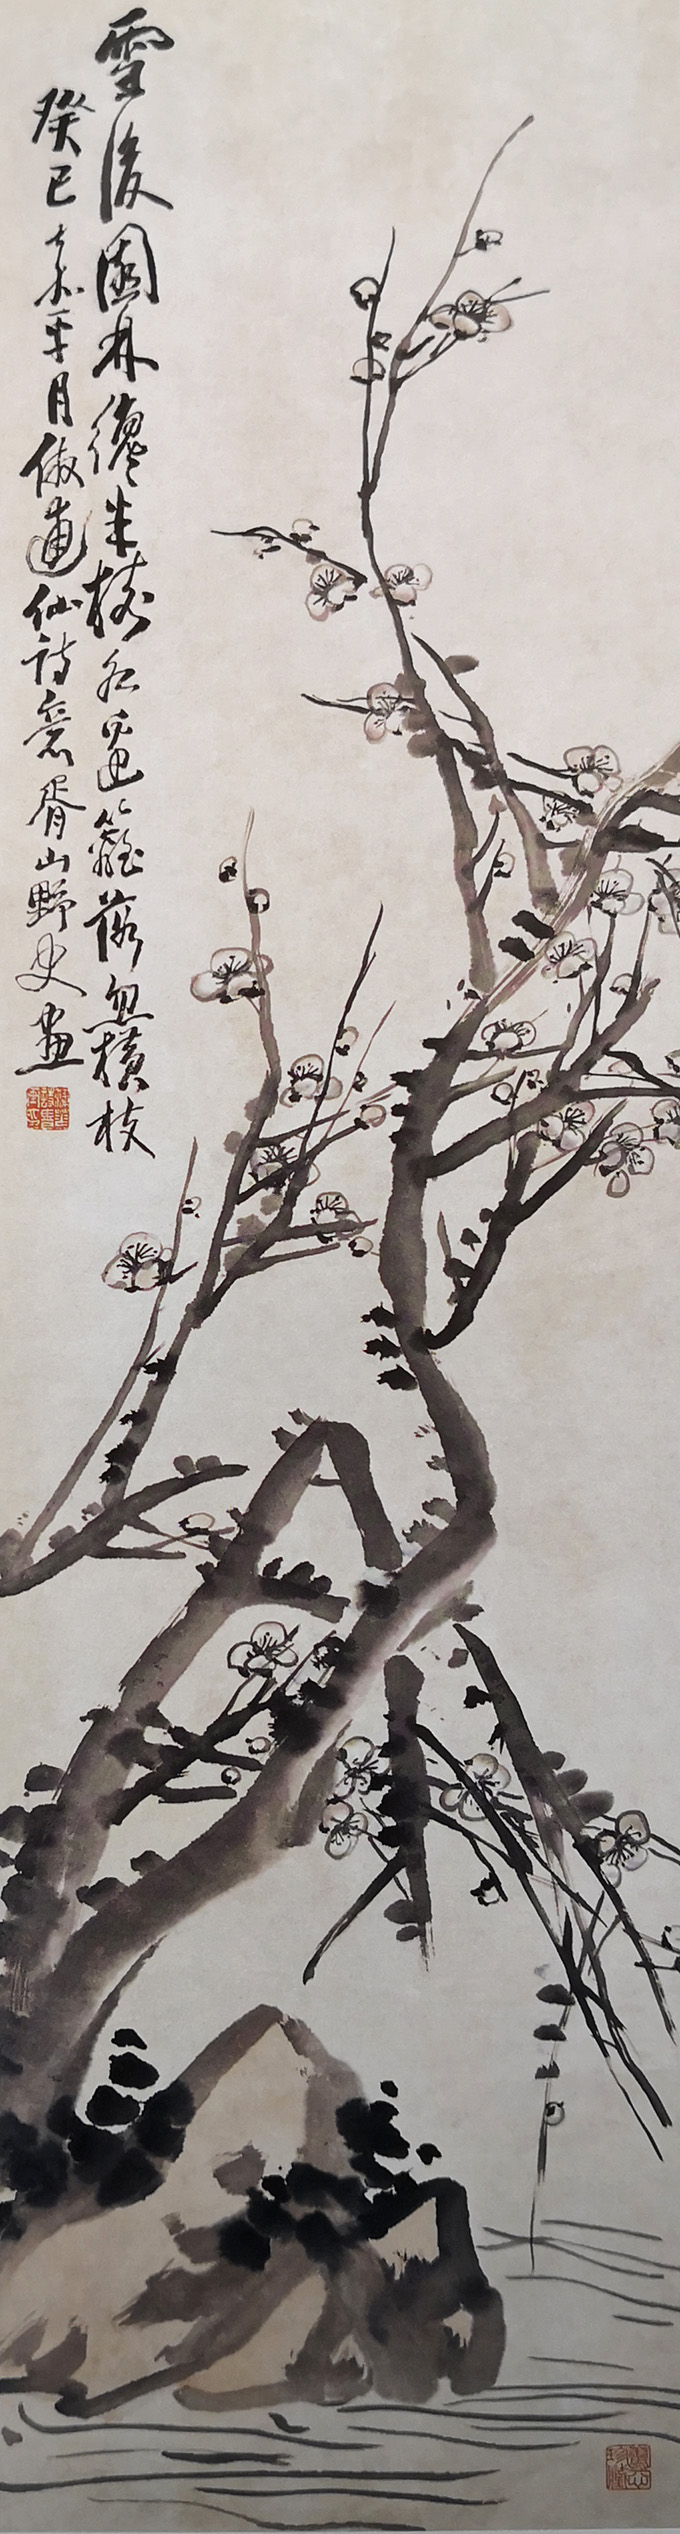 雪後園林纔半樹水邊籬落忽橫枝
癸巳嘉平月倣逋仙詩意胥山野史畫